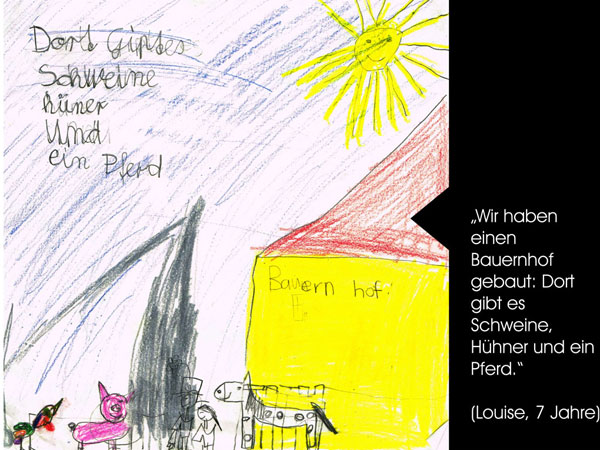 Dort Giptes
Schweine
hüner
Und
ein Pferd
Bauern hof:
„Wir haben
einen
Bauernhof
gebaut: Dort
gibt es
Schweine,
Hühner und ein
Pferd.“
(Louise, 7 Jahre)